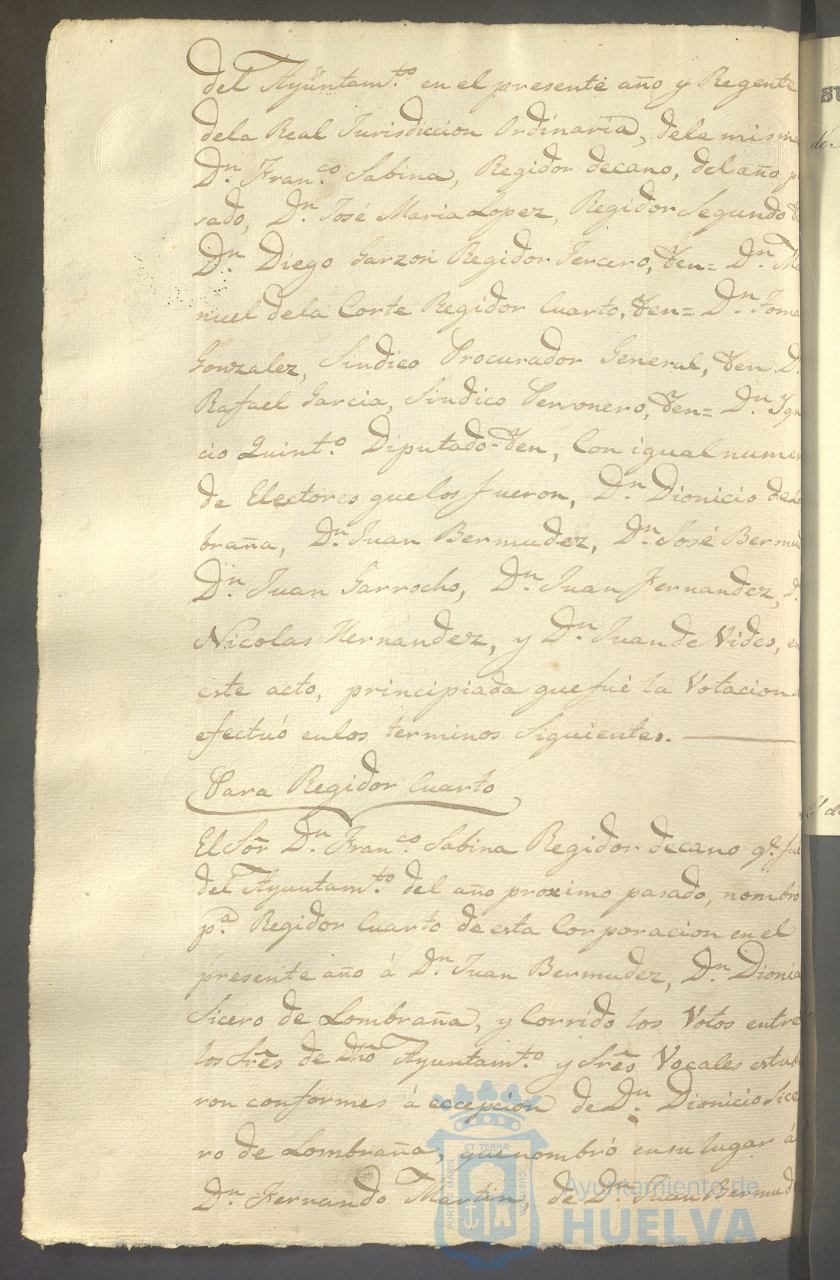 del Ayuntam.to en el presente año y Regente
dela Real Jurisdiccion Ordinaria, dela misma
Dn. Fran.co Sabina, Regidor decano, del año p
sado, Dn. José Maria Lopez, Regidor Segundo
Dn. Diego Garzon Regidor Tercero, Ten= Dn. Ma
nuel dela Corte Regidor Cuarto, Ten= Dn. Toma
Gonzalez, Sindico Procurador General, Ten D.
Rafael Garcia, Sindico Personero, Ten= Dn. Ygna
cio Quint.o Diputado Ten, Con igual numer
de Electores que los fueron, Dn. Dionicio de Lo
braña, Dn. Juan Bermudez, Dn. José Bermu
Dn. Juan Garrocho, Dn. Juan Fernandez, D.
Nicolas Hernandez, y Dn. Juan de Vides, en
este acto, principiada que fué la Votacion
efectuó enlos terminos Siguientes.
Para Regidor Cuarto
El Sor. Dn. Fran.co Sabina Regidor decano q.e fue
del Ayuntam.to del año proximo pasado, nombro
p.a Regidor Cuarto de esta Corporacion en el
presente año á Dn. Juan Bermudez, Dn. Dionic
Sicero de Lombraña, y Corrido los Votos entre
los Sres de Dho Ayuntam.to y Sres Vocales estuv
ron conformes á eccepcion de Dn. Dionicio Sice
ro de Lombraña, que nombró en su lugar á
Dn. Fernando Martin, de Dn. Juan Bermud
ET TERRÆ
Ayuntamiento de
HUELVA